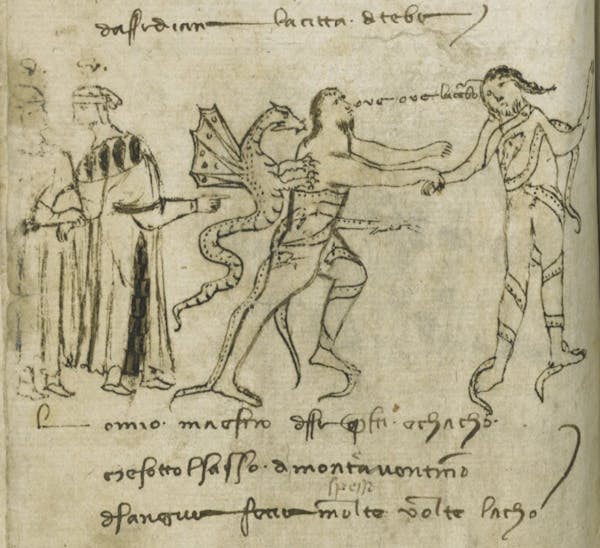 dassediar la citta. d tebe
v.
ove. ove lac̄bo
L omio. maestro disse q̄sti. echacho.
che sotto lsasso. d monte aventino
spesse
d sangue fecie molte volte lacho